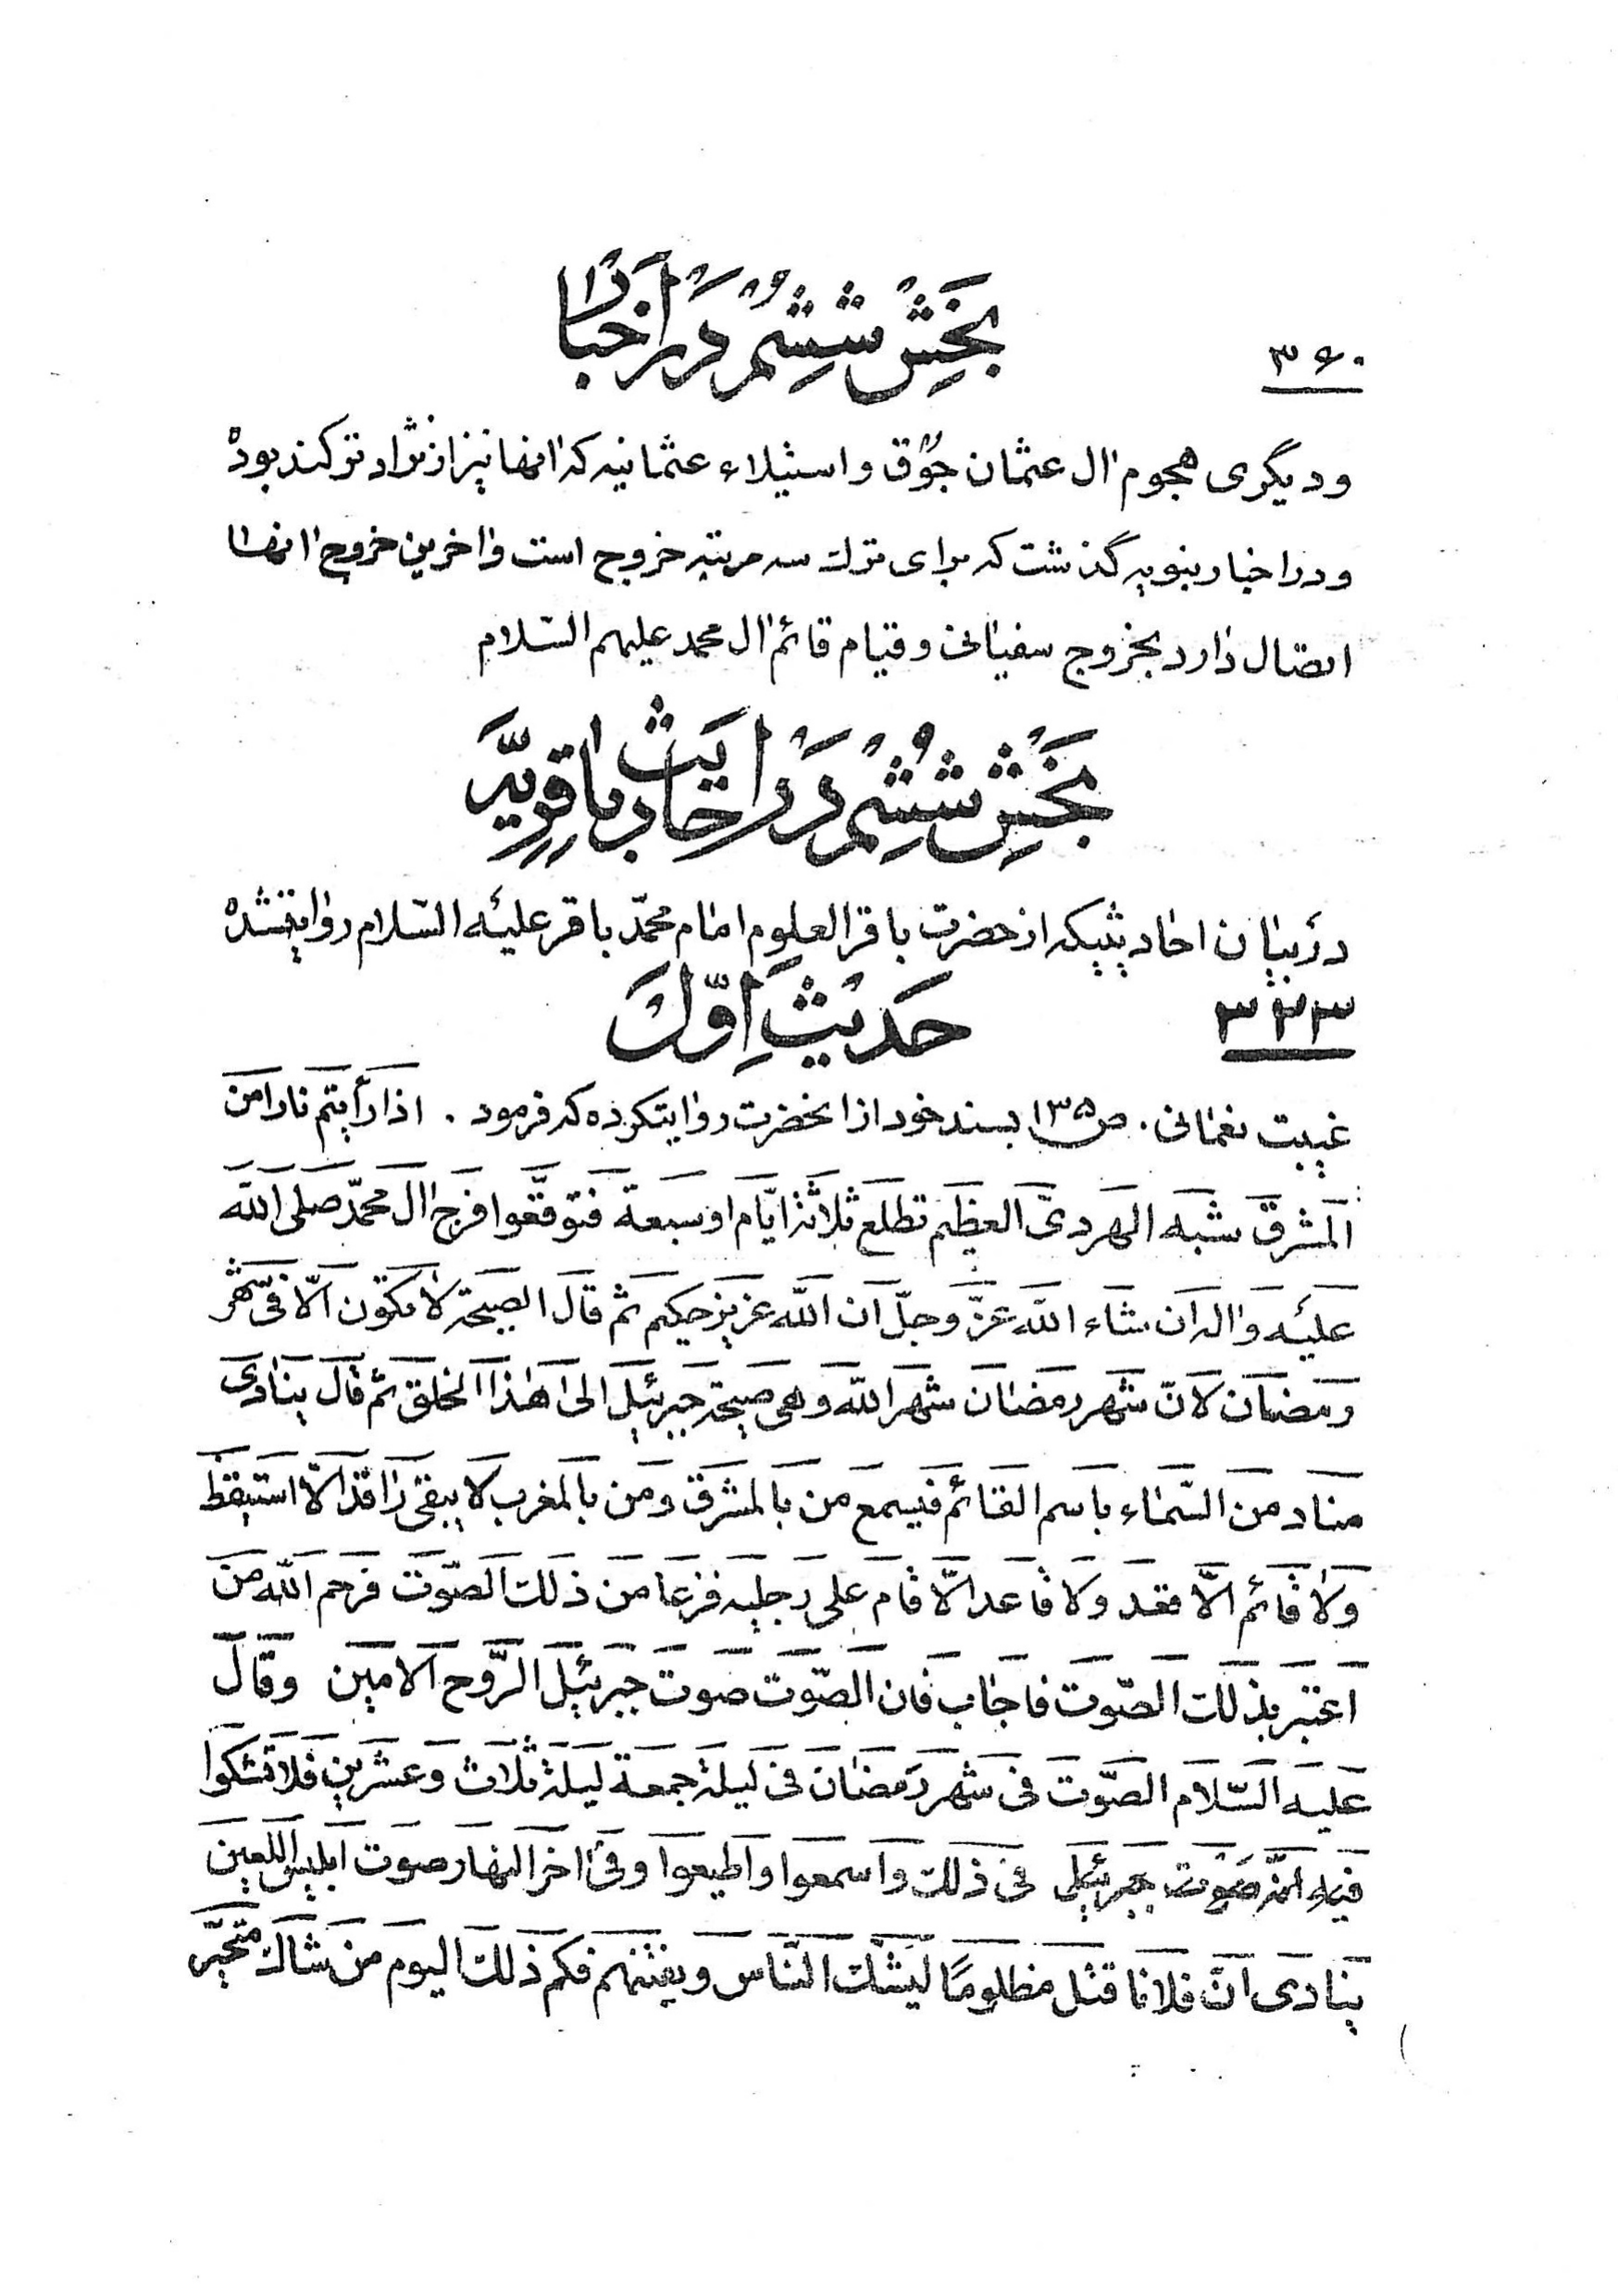 بخش ششم در اخبار
۳۶۰
و دیگری هجوم ال عثمان جوق و استیلاء عثمانیه که انها نیز از نژاد ترکند بوده
و در اخبار نبویه گذشت که برای ترک سه مرتبه خروج است و اخرین خروج انها
اتصال دارد بخروج سفیانی و قیام قائم ال محمد علیهم السّلام
بخش ششم در احادیث باقریّه
در بیان احادیثیکه از حضرت باقر العلوم امام محمّد باقر علیه السّلام روایتشده
۳۲۳
حدیث اوّل
غیبت نعمانی . ص ۱۳۵ بسند خود از انحضرت روایتکرده که فرمود . اذا رأیتم نارا من
المشرق شبه الهردیّ العظیم تطلع ثلاثة ایّام او سبعة فتوقّعوا فرج ال محمّد صلی اللّه
علیه و اله ان شاء اللّه عزّ و جلّ ان اللّه عزیز حکیم ثم قال الصیحة لا تکون الّا فی شهر
رمضان لانّ شهر رمضان شهر اللّه و هی صیحة جبرئیل الی هذا الخلق ثم قال ینادی
مناد من السّماء باسم القائم فیسمع من بالمشرق و من بالمغرب لا یبقی راقد الّا استیقظ
و لا قائم الّا قعد و لا قاعد الّا قام علی رجلیه فزعا من ذلک الصّوت فرحم اللّه من
اعتبر بذلک الصّوت فاجاب فان الصّوت صوت جبرئیل الرّوح الامین و قال
علیه السّلام الصّوت فی شهر رمضان فی لیلة جمعة لیلة ثلاث و عشرین فلا تشکوا
فیه انّه صوت جبرئیل فی ذلک و اسمعوا و اطیعوا و فی اخر النهار صوت ابلیس اللعین
ینادی انّ فلانا قتل مظلومًا لیشکّ النّاس و یفتنهم فکم ذلک الیوم من شاک متحیّر